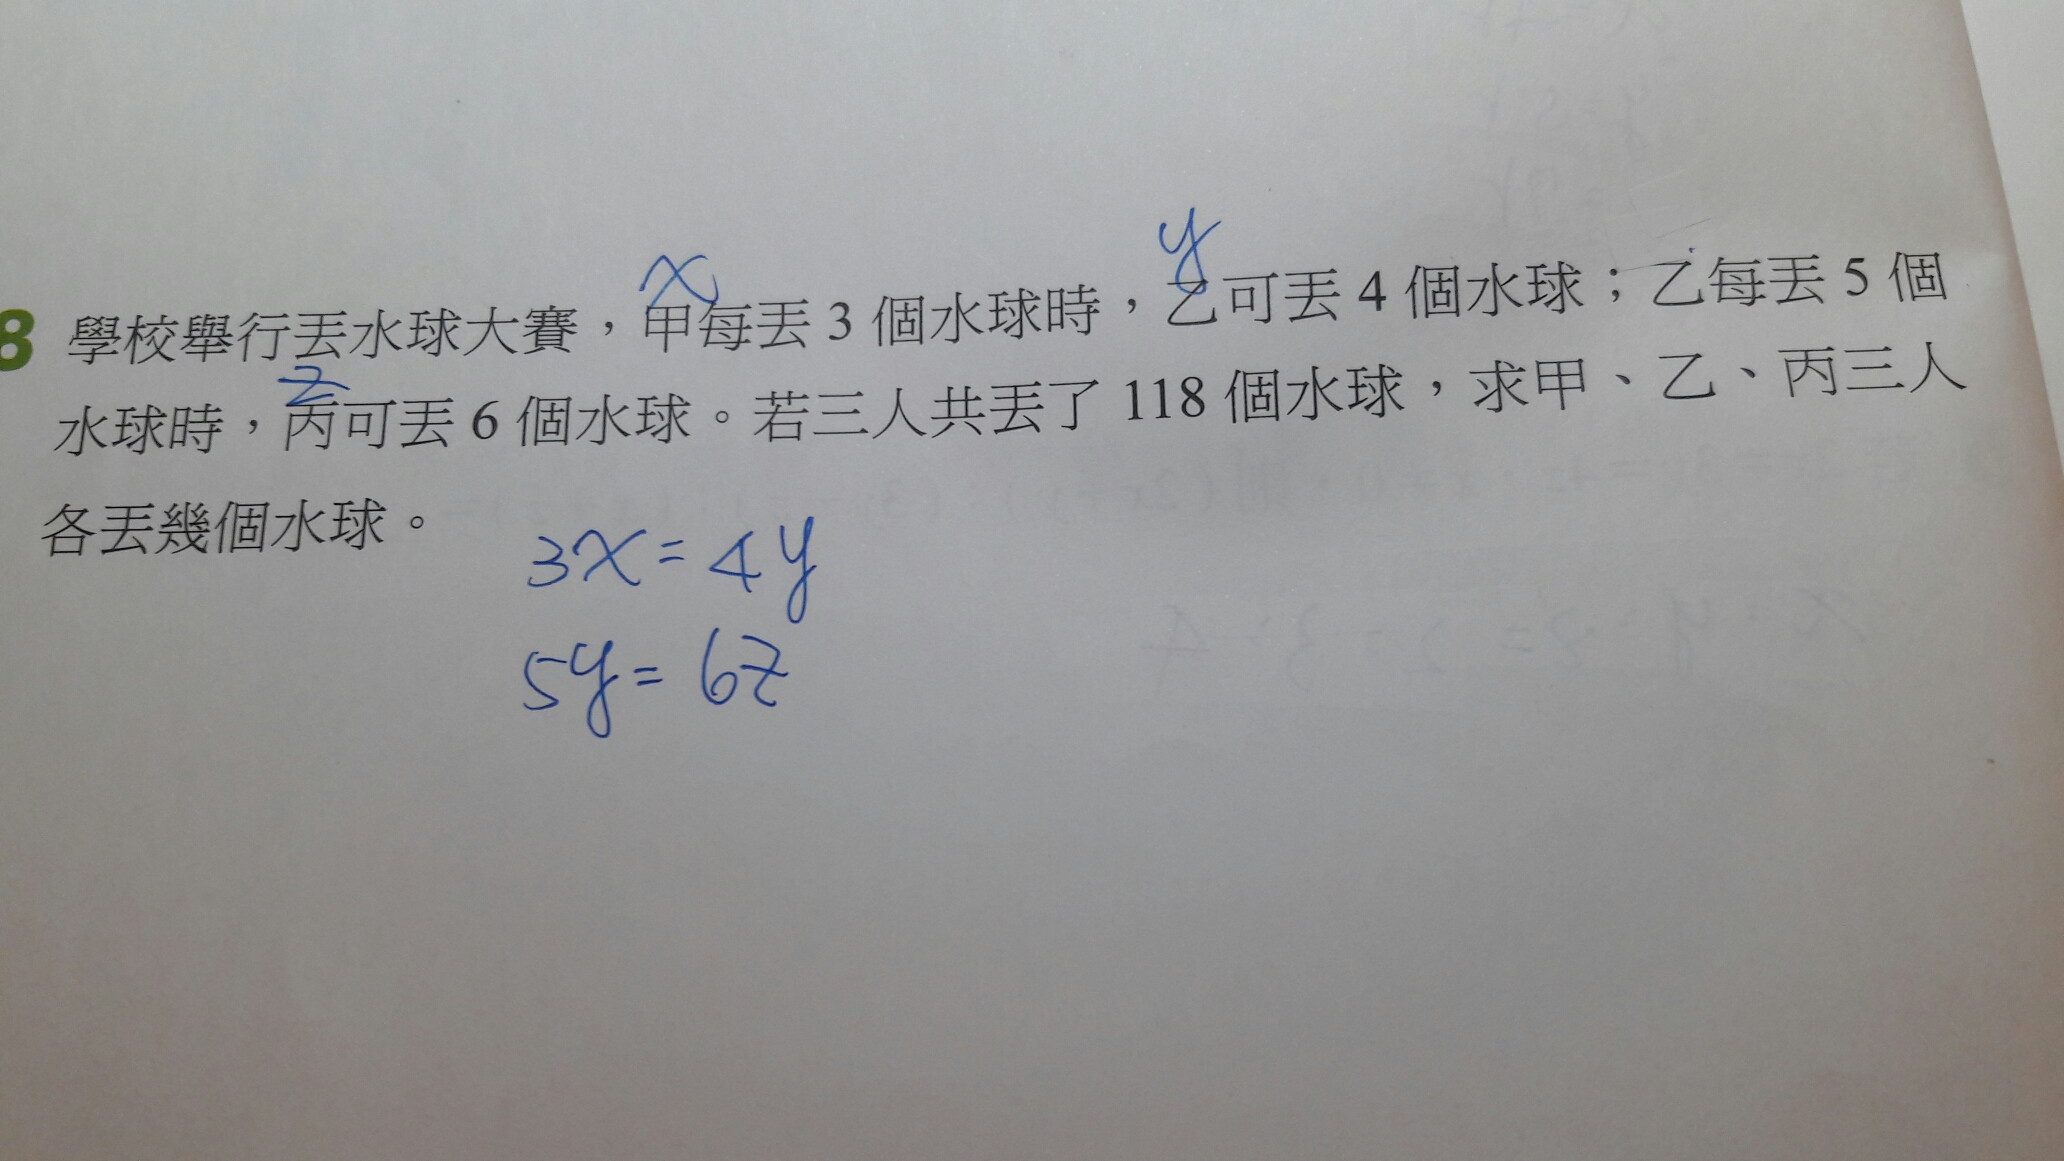 x
y
8 學校舉行丟水球大賽，甲每丟 3 個水球時，乙可丟 4 個水球；乙每丟 5 個
z
水球時，丙可丟 6 個水球。若三人共丟了 118 個水球，求甲、乙、丙三人
各丟幾個水球。
3x = 4y
5y = 6z